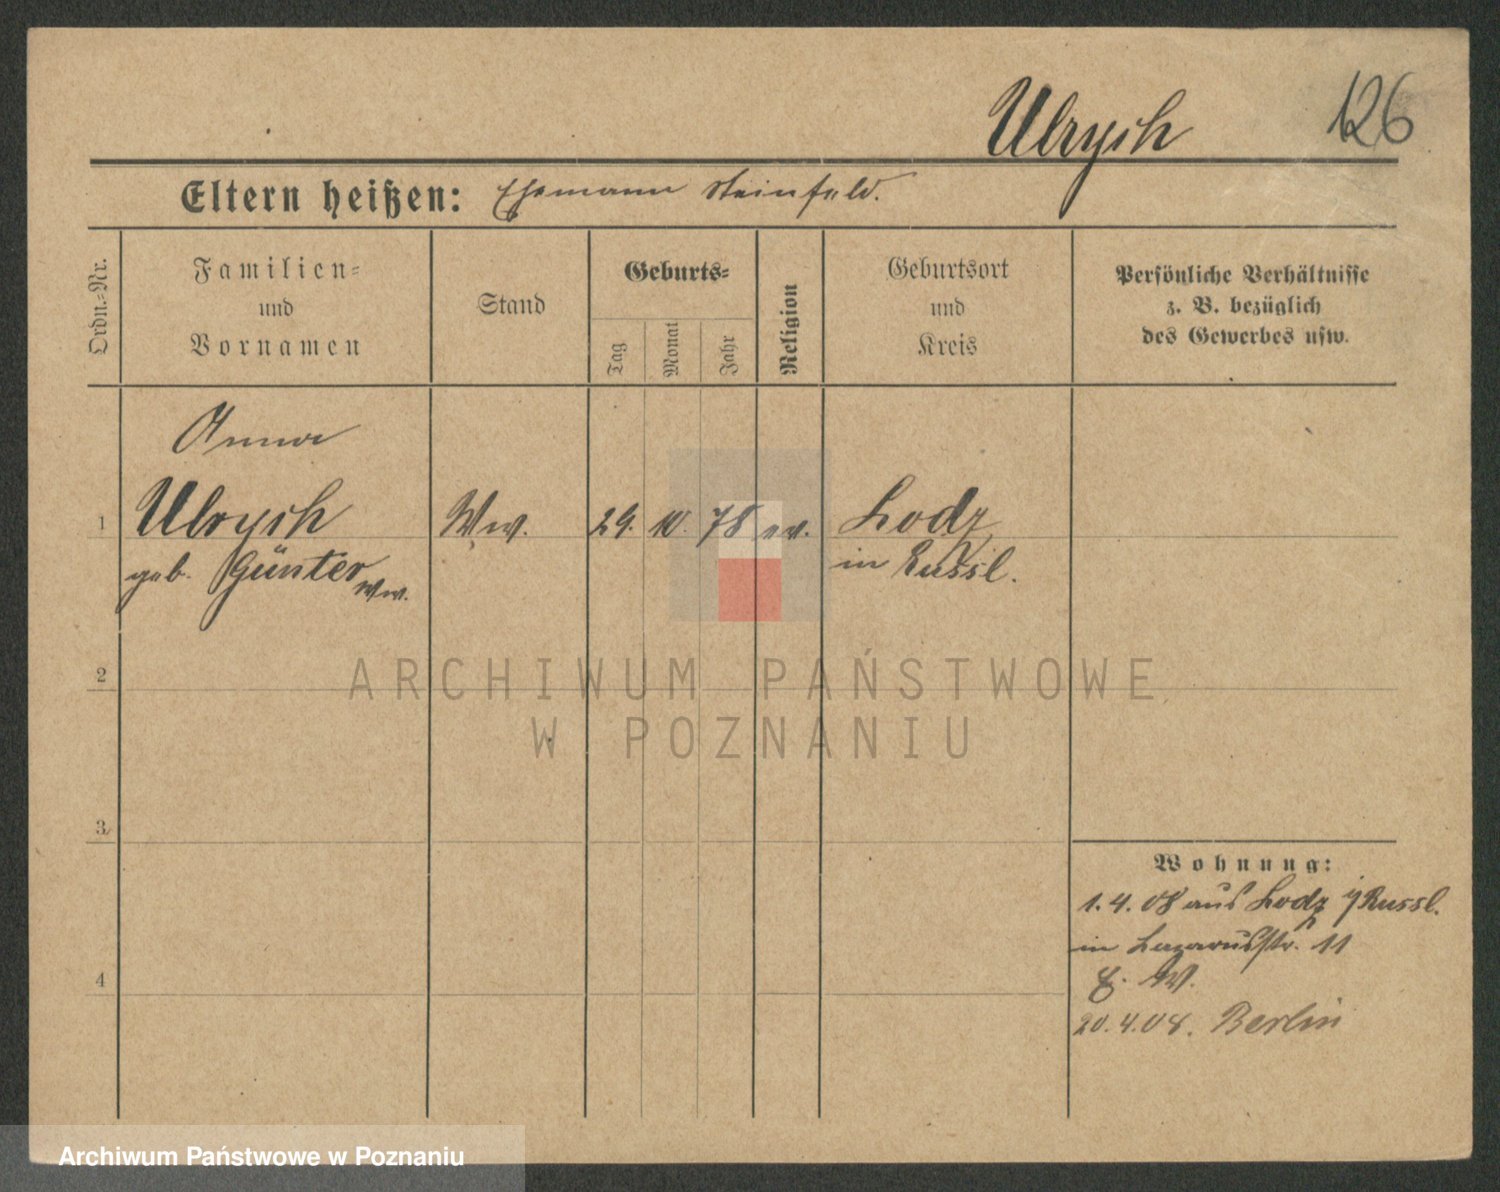 Ulrych
126
Eltern heißen: Ehemann Steinfeld.
Ordn.-Nr.
Familien-
und
Vornamen
Stand
Geburts-
Tag
Monat
Jahr
Religion
Geburtsort
und
Kreis
Persönliche Verhältnisse
z. B. bezüglich
des Gewerbes usw.
Anna
1 Ulrych Ww. 29. 10. 78 ev. Lodz
geb. Günter Ww. in Russl.
2
3
4
Wohnung:
1. 4. 08 aus Lodz i/Russl.
in Lazarusstr. 11
W.
20. 4. 08. Berlin
ARCHIWUM PAŃSTWOWE
W POZNANIU
Archiwum Państwowe w Poznaniu